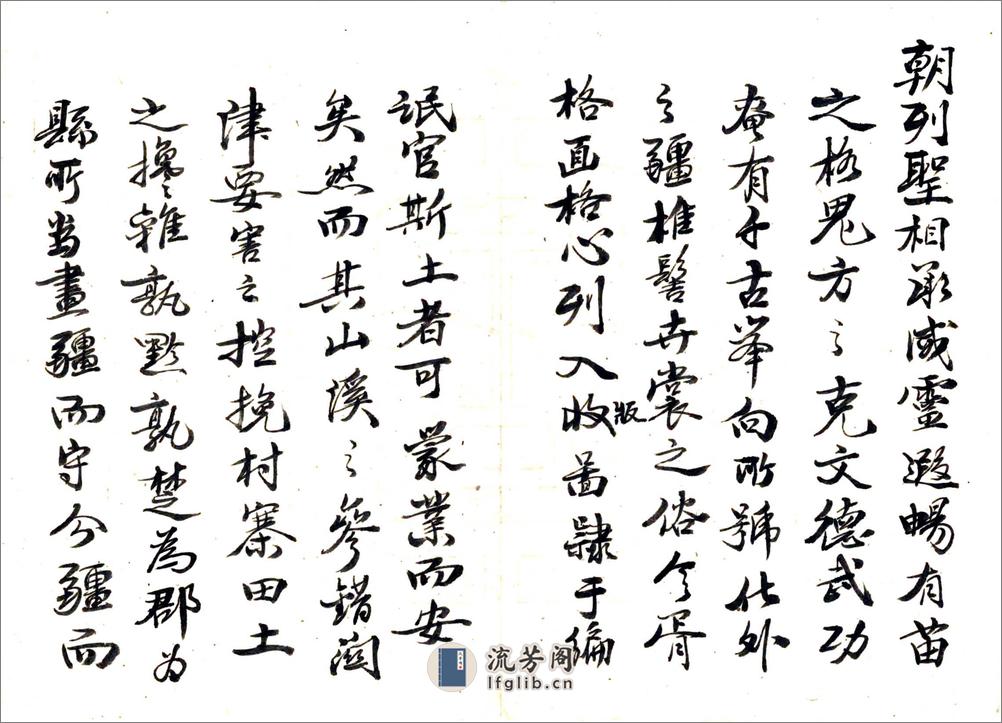 朝列聖相承威靈遐暢有苗
之格鬼方之克文德武功
奄有千古舉向所號化外
之疆椎髻卉裳之俗今胥
格面格心列入版啚隸于編
氓官斯土者可蒙業而安
矣然而其山溪之參錯關
津要害之控扼村寨田土
之攙雜孰黔孰楚為郡為
縣所當畫疆而守分疆而
流芳阁
lfglib.cn